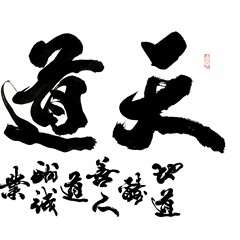 天道
地道
酬
善人
道
酬誠
業